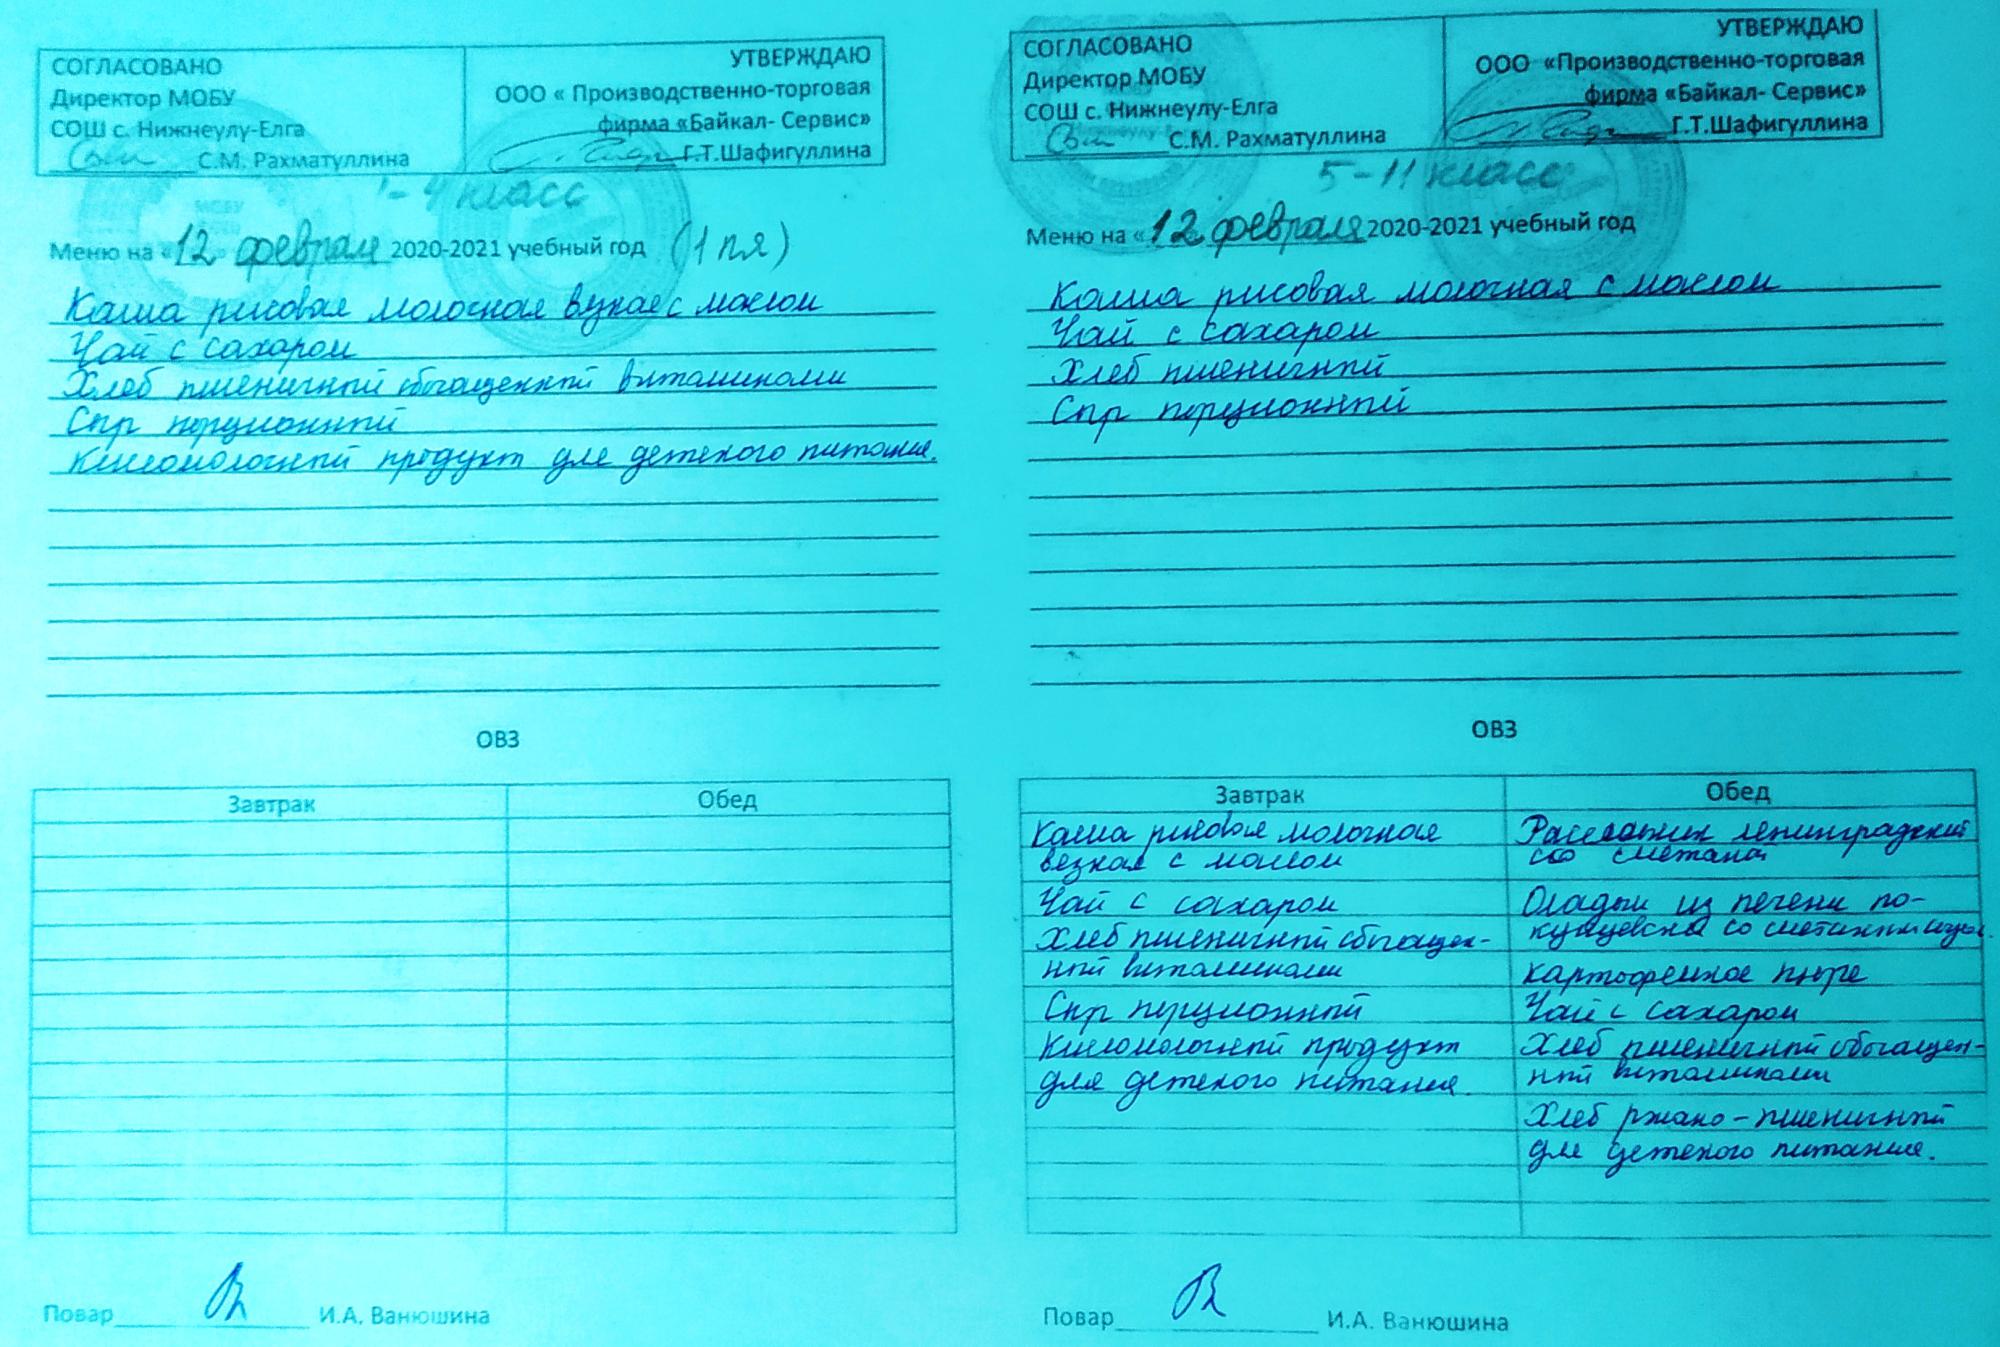 СОГЛАСОВАНО
Директор МОБУ
СОШ с. Нижнеулу-Елга
С.М. Рахматуллина
УТВЕРЖДАЮ
ООО « Производственно-торговая
фирма «Байкал- Сервис»
Г.Т.Шафигуллина
1-4 класс
Меню на «12» февраля 2020-2021 учебный год (1 пя)
Каша рисовая молочная вязкая с маслом
Чай с сахаром
Хлеб пшеничный обогащенный витаминами
Сыр порционный
Кисломолочный продукт для детского питания.
ОВЗ
Завтрак
Обед
Повар И.А. Ванюшина
СОГЛАСОВАНО
Директор МОБУ
СОШ с. Нижнеулу-Елга
С.М. Рахматуллина
УТВЕРЖДАЮ
ООО «Производственно-торговая
фирма «Байкал- Сервис»
Г.Т.Шафигуллина
5-11 класс
Меню на «12 февраля 2020-2021 учебный год
Каша рисовая молочная с маслом
Чай с сахаром
Хлеб пшеничный
Сыр порционный
ОВЗ
Завтрак
Каша рисовая молочная
вязкая с маслом
Чай с сахаром
Хлеб пшеничный обогащен-
ный витаминами
Сыр порционный
Кисломолочный продукт
для детского питания.
Обед
Рассольник ленинградский
со сметаной
Оладьи из печени по-
кунцевски со сметанным
картофельное пюре
Чай с сахаром
Хлеб пшеничный обогащен-
ный витаминами
Хлеб ржано-пшеничный
для детского питания.
Повар И.А. Ванюшина